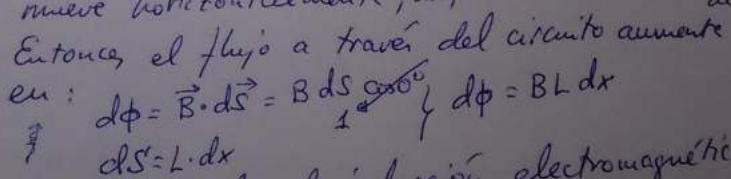 mueve horizontalmente,
Entonces el flujo a través del circuito aumente
en : dϕ = B⃗ · dS⃗ = B dS cos0° } dϕ = B L dx
1
dS = L · dx
electromagnétic